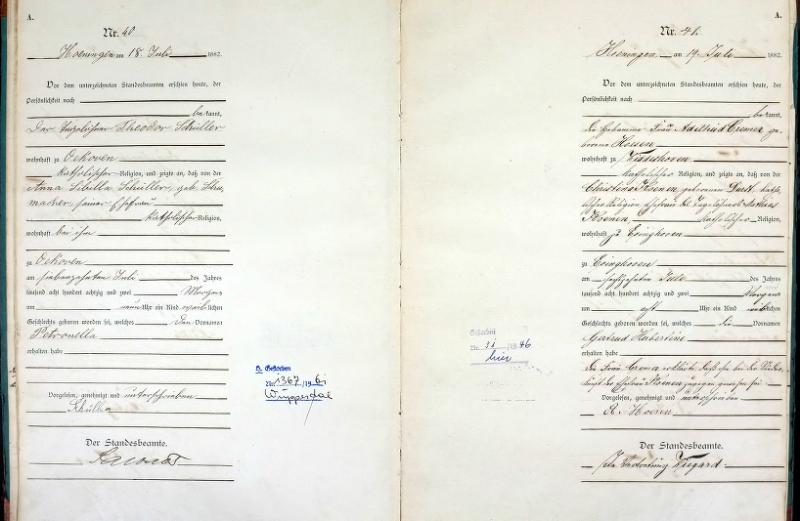 A.
Nr. 40
Hoeningen am 18. Juli 1882.
Vor dem unterzeichneten Standesbeamten erschien heute, der
Persönlichkeit nach
be kannt,
Der Theodor Schüller
wohnhaft zu Oekoven
katholischer Religion, und zeigte an, daß von der
Anna Sibilla Schüller, geb. Schu
macher, seiner Ehefrau
katholischer Religion,
wohnhaft bei ihm
zu Oekoven
am siebenzehnten Juli des Jahres
tausend acht hundert achtzig und zwei Morgens
um neun Uhr ein Kind weiblichen
Geschlechts geboren worden sei, welches den Vornamen
Petronella
erhalten habe
Vorgelesen, genehmigt und unterschrieben
Der Standesbeamte.
H. Gestorben
Nr. 1367/19 61
Wuppertal
A.
Nr. 41.
Hoeningen am 19. Juli 1882.
Vor dem unterzeichneten Standesbeamten erschien heute, der
Persönlichkeit nach
be kannt,
die Hebamme Frau Adelheid Cremer ge
borene Hoesen
wohnhaft zu
katholischer Religion, und zeigte an, daß von der
Christina Koenen, geborenen katho
lischer Religion Ehefrau des Tagelöhners Mathias
Koenen katholischer Religion,
wohnhaft zu Evinghoven
zu Evinghoven
am Juli des Jahres
tausend acht hundert achtzig und zwei Morgens
um Uhr ein Kind weiblichen
Geschlechts geboren worden sei, welches die Vornamen
Gertrud Hubertine
erhalten habe
Die Frau Cremer erklärte daß sie bei der Nieder
kunft der Ehefrau Koenen zugegen gewesen sei
Vorgelesen, genehmigt und unterschrieben
Der Standesbeamte.
In Vertretung Wiegard
Gestorben
Nr. 11/1946
hier